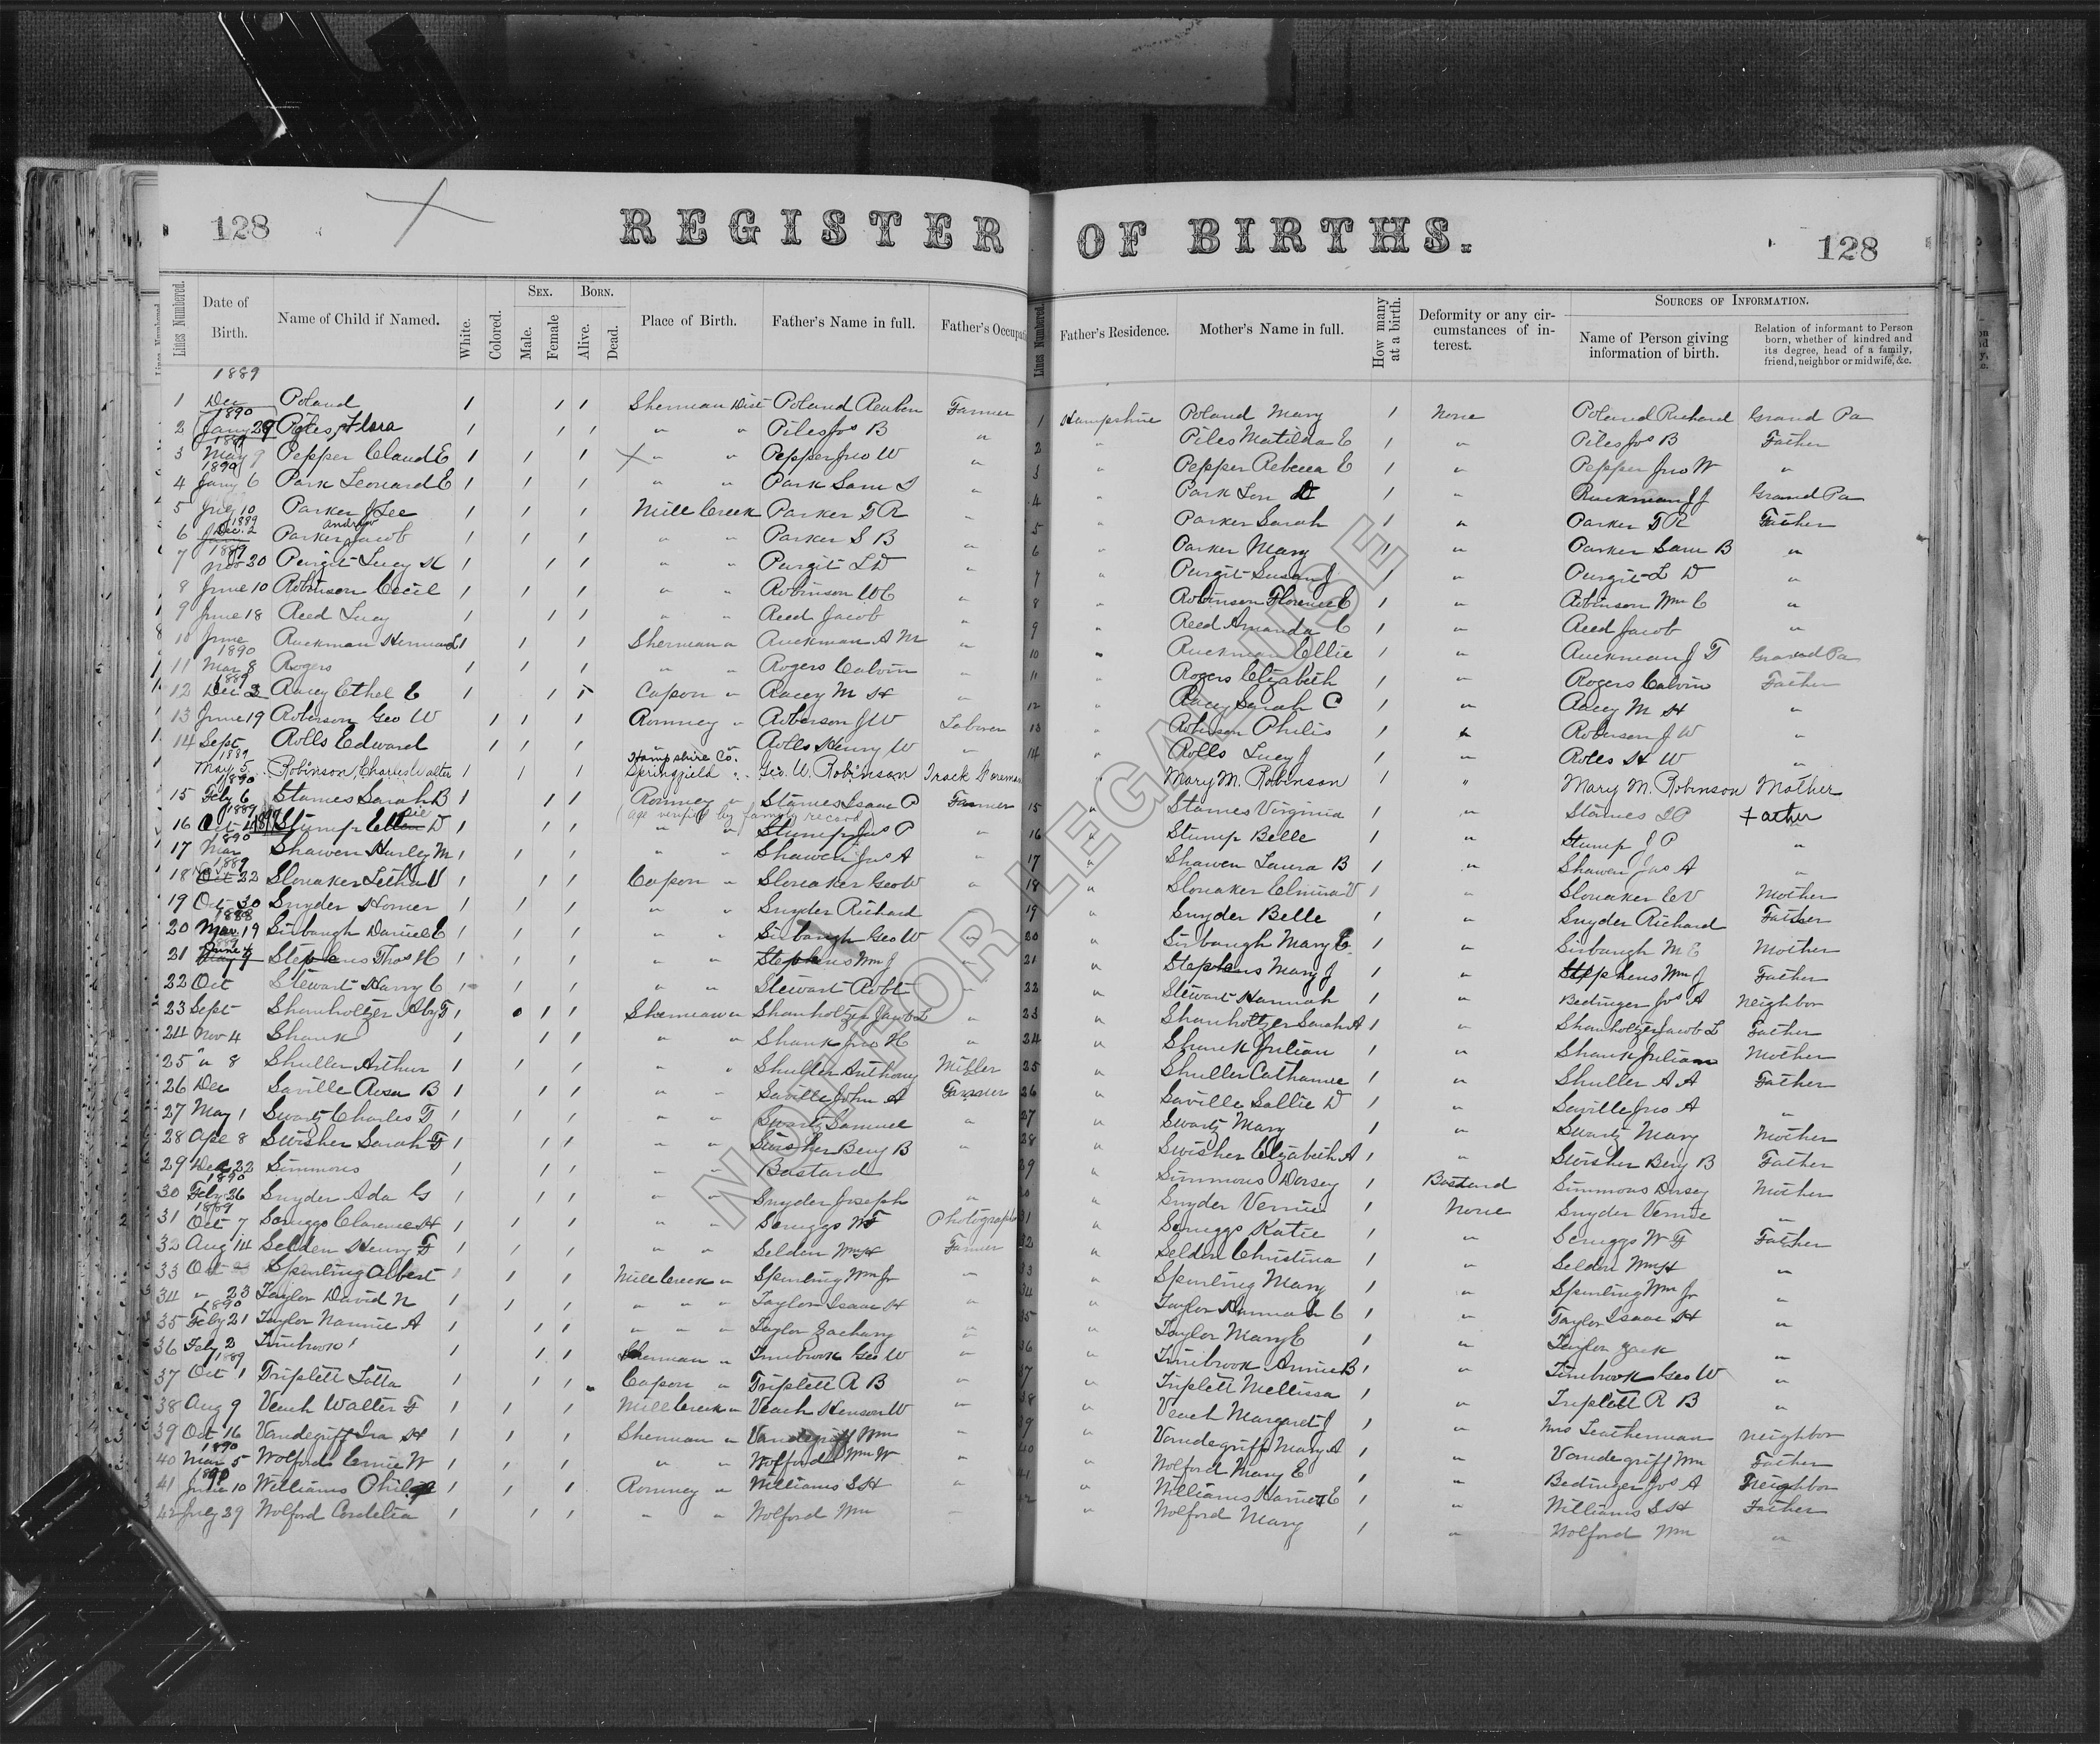 128
REGISTER OF BIRTHS.
128
Lines Numbered. Date of Birth. Name of Child if Named. White. Colored. SEX. Male. Female BORN. Alive. Dead. Place of Birth. Father's Name in full. Father's Occupati Lines Numbered. Father's Residence. Mother's Name in full. How many at a birth. Deformity or any circumstances of interest. SOURCES OF INFORMATION. Name of Person giving information of birth. Relation of informant to Person born, whether of kindred and its degree, head of a family, friend, neighbor or midwife, &c.
1889
1 Dec Poland 1 1 1 Sherman Dist Poland Reuben Farmer 1 Hampshire Poland Mary 1 None Poland Richard Grand Pa
1890
2 Jany 29 Piles Flora 1 1 1 " " Piles Jos B " 2 " Piles Matilda E 1 " Piles Jos B Father
1889
3 May 9 Pepper Claud E 1 1 1 " " Pepper Jno W " 3 " Pepper Rebecca E 1 " Pepper Jno W "
1890
4 Jany 6 Park Leonard E 1 1 1 " " Park Sam S " 4 " Park Lou 1 " Ruckman J J Grand Pa
5 July 10 Parker J Lee 1 1 1 Mill Creek Parker T R " 5 " Parker Sarah 1 " Parker T R Father
1889
6 Dec. 2 Parker Andrew Jacob 1 1 1 " " Parker S B " 6 " Parker Mary 1 " Parker Sam B "
1889
7 Nov 20 Purgit Lucy H 1 1 1 " " Purgit L D " 7 " Purgit Susan J 1 " Purgit L D "
8 June 10 Robinson Cecil 1 1 1 " " Robinson W C " 8 " Robinson Florence E 1 " Robinson Wm C "
9 June 18 Reed Lucy 1 1 1 " " Reed Jacob " 9 " Reed Amanda C 1 " Reed Jacob "
10 June Ruckman Herman L 1 1 1 Sherman " Ruckman A M " 10 " Ruckman Ellie 1 " Ruckman J T Grand Pa
1890
11 Mar 8 Rogers 1 1 1 " " Rogers Calvin " 11 " Rogers Elizabeth 1 " Rogers Calvin Father
1889
12 Dec 3 Racey Ethel E 1 1 1 Capon " Racey M H " 12 " Racey Sarah C 1 " Racey M H "
13 June 19 Roberson Geo W 1 1 1 Romney " Roberson J W Laborer 13 " Robinson Philis 1 " Robinson J W "
14 Sept Rolls Edward 1 1 1 " " Rolls Henry W " 14 " Rolls Lucy J 1 " Roles H W "
1889 Hampshire Co.
May 5 Robinson, Charles Walter 1 1 1 Springfield " Geo. W. Robinson Track Foreman " Mary M. Robinson 1 " Mary M. Robinson Mother
1890
15 Feby 6 Starnes Sarah B 1 1 1 Romney " Starnes Isaac P Farmer 15 " Starnes Virginia 1 " Starnes I P Father
1889 (age verified by family record)
16 Oct 4 1889 Stump D 1 1 1 " " Stump Jas P " 16 " Stump Belle 1 " Stump J P "
1890
17 Mar Shawen Hurley M 1 1 1 " " Shawen Jas A " 17 " Shawen Laura B 1 " Shawen Jas A "
1889
18 Nov 22 Slonaker Letha V 1 1 1 Capon " Slonaker Geo W " 18 " Slonaker Elmira V 1 " Slonaker E V Mother
19 Oct 30 Snyder Homer 1 1 1 " " Snyder Richard 19 " Snyder Belle 1 " Snyder Richard Father
1888
20 Mar 19 Sirbaugh Daniel E 1 1 1 " " Sirbaugh Geo W " 20 " Sirbaugh Mary E 1 " Sirbaugh M E Mother
1889
21 June 4 Stephens Thos H 1 1 1 " " Stephens Wm J " 21 " Stephens Mary J 1 " Stephens Wm J Father
22 Oct Stewart Harry C 1 1 1 " " Stewart Robt " 22 " Stewart Hannah 1 " Bedinger Jos A Neighbor
23 Sept Shanholtzer Aby F 1 1 1 Sherman " Shanholtzer Jacob L " 23 " Shanholtzer Sarah A 1 " Shanholtzer Jacob L Father
24 Nov 4 Shank 1 1 1 " " Shank Jno H " 24 " Shank Julian 1 " Shank Julian Mother
25 " 8 Shuller Arthur 1 1 1 " " Shuller Anthony Miller 25 " Shuller Catharine 1 " Shuller A A Father
26 Dec Saville Rosa B 1 1 1 " " Saville John A Farmer 26 " Saville Sallie D 1 " Saville Jno A "
27 May 1 Swartz Charles F 1 1 1 " " Swartz Samuel " 27 " Swartz Mary 1 " Swartz Mary Mother
28 Apr 8 Swisher Sarah F 1 1 1 " " Swisher Benj B " 28 " Swisher Elizabeth A 1 " Swisher Benj B Father
29 Dec 22 Simmons 1 1 1 " " Bastard 29 " Simmons Dorsey 1 Bastard Simmons Dorsey Mother
1890
30 Feby 26 Snyder Ada G 1 1 1 " " Snyder Joseph " 30 " Snyder Vernie 1 None Snyder Vernie "
1889
31 Oct 7 Scruggs Clarence H 1 1 1 " " Scruggs W F Photographer 31 " Scruggs Katie 1 " Scruggs W F Father
32 Aug 14 Selden Henry F 1 1 1 " " Selden Wm H Farmer 32 " Selden Christina 1 " Selden Wm H "
33 Oct Spurling Albert 1 1 1 Mill Creek " Spurling Wm Jr " 33 " Spurling Mary 1 " Spurling Wm Jr "
34 " 23 Taylor David N 1 1 1 " " " Taylor Isaac H " 34 " Taylor Hannah C 1 " Taylor Isaac H "
1890
35 Feby 21 Taylor Nannie A 1 1 1 " " " Taylor Zachary " 35 " Taylor Mary E 1 " Taylor Zack "
36 Feby 2 Timbrook 1 1 1 Sherman " Timbrook Geo W " 36 " Timbrook Annie B 1 " Timbrook Geo W "
1889
37 Oct 1 Triplett Lotta 1 1 1 Capon " Triplett R B " 37 " Triplett Mellissa 1 " Triplett R B "
38 Aug 9 Veach Walter F 1 1 1 Mill Creek " Veach Henson W " 38 " Veach Margaret J 1 " Mrs Leatherman Neighbor
39 Oct 16 Vandegriff Ira H 1 1 1 Sherman " Vandegriff Wm " 39 " Vandegriff Mary A 1 " Vandegriff Wm Father
1890
40 Mar 5 Wolford Ernie W 1 1 1 " " Wolford Wm W " 40 " Wolford Mary E 1 " Bedinger Jos A Neighbor
41 June 10 Williams Philip 1 1 1 Romney " Williams S H " 41 " Williams Harriet E 1 " Williams S H Father
42 July 29 Wolford Cordelia 1 1 1 " " Wolford Wm " 42 " Wolford Mary 1 " Wolford Wm "
NOT FOR LEGAL USE